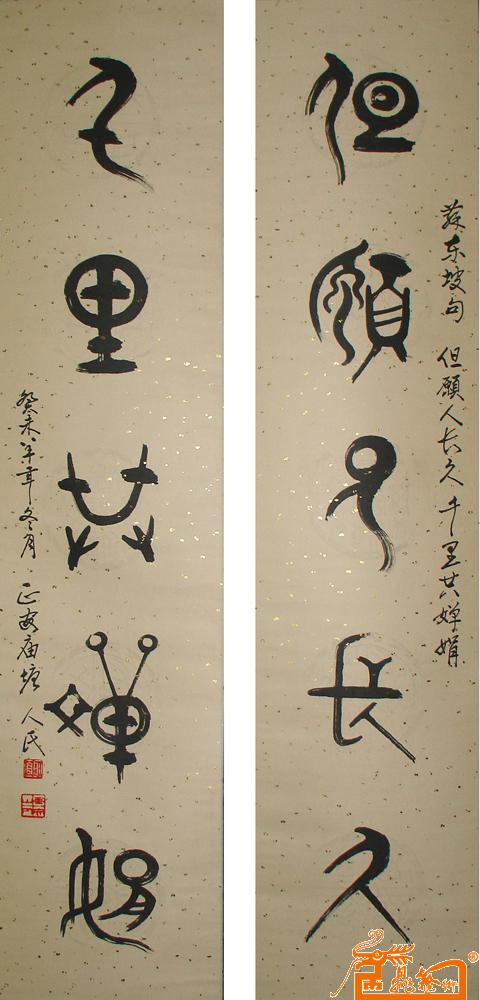 苏东坡句 但願人长久 千里共婵娟
但願人長久
千里共嬋娟
癸未年冬月
人民